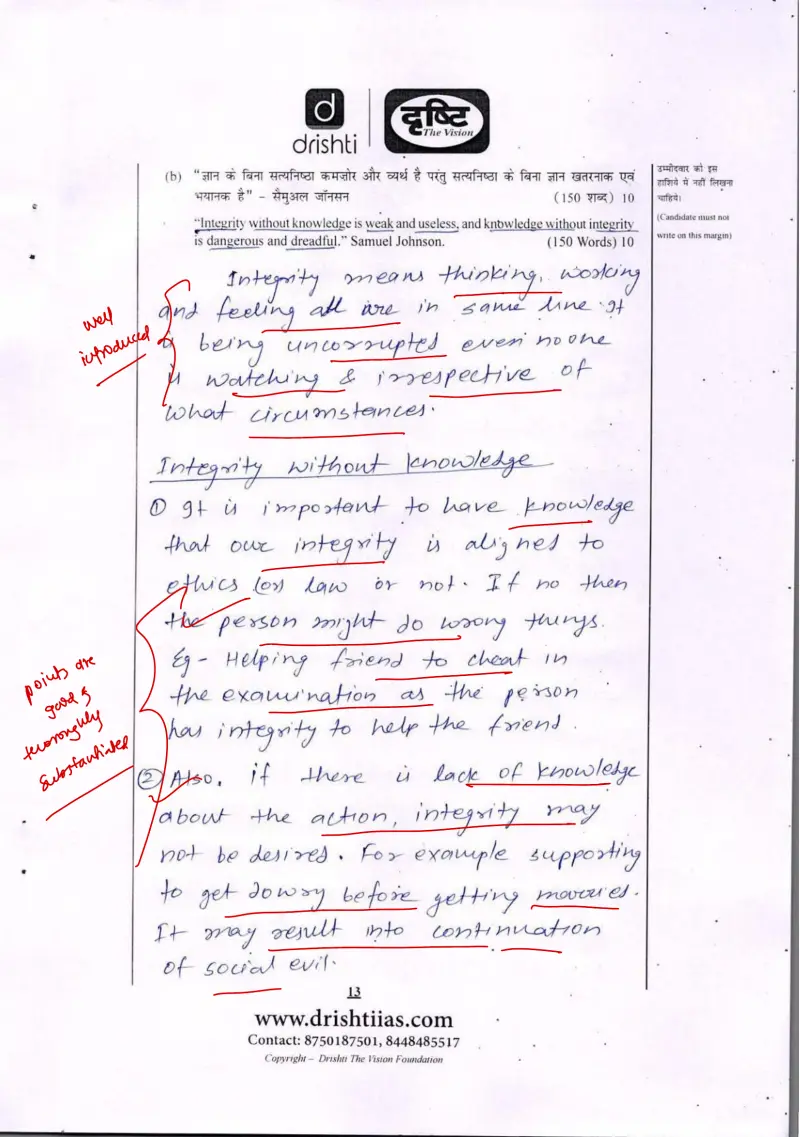 d
drishti
दृष्टि
The Vision
(b) “ज्ञान के बिना सत्यनिष्ठा कमज़ोर और व्यर्थ है परंतु सत्यनिष्ठा के बिना ज्ञान खतरनाक एवं
भयानक है” - सैमुअल जॉनसन (150 शब्द) 10
“Integrity without knowledge is weak and useless, and knowledge without integrity
is dangerous and dreadful.” Samuel Johnson. (150 Words) 10
उम्मीदवार को इस
हाशिये में नहीं लिखना
चाहिये।
(Candidate must not
write on this margin)
Integrity means thinking, working
and feeling all are in same line. It
is being uncorrupted even no one
is watching & irrespective of
what circumstances.
well
introduced
Integrity without knowledge
① It is important to have knowledge
that our integrity is aligned to
ethics (or) law or not. If no then
the person might do wrong things.
Eg - Helping friend to cheat in
the examination as the person
has integrity to help the friend.
points are
good &
thoroughly
substantiated
② Also, if there is lack of knowledge
about the action, integrity may
not be desired. For example supporting
to get dowry before getting married.
It may result into continuation
of social evil.
13
www.drishtiias.com
Contact: 8750187501, 8448485517
Copyright – Drishti The Vision Foundation